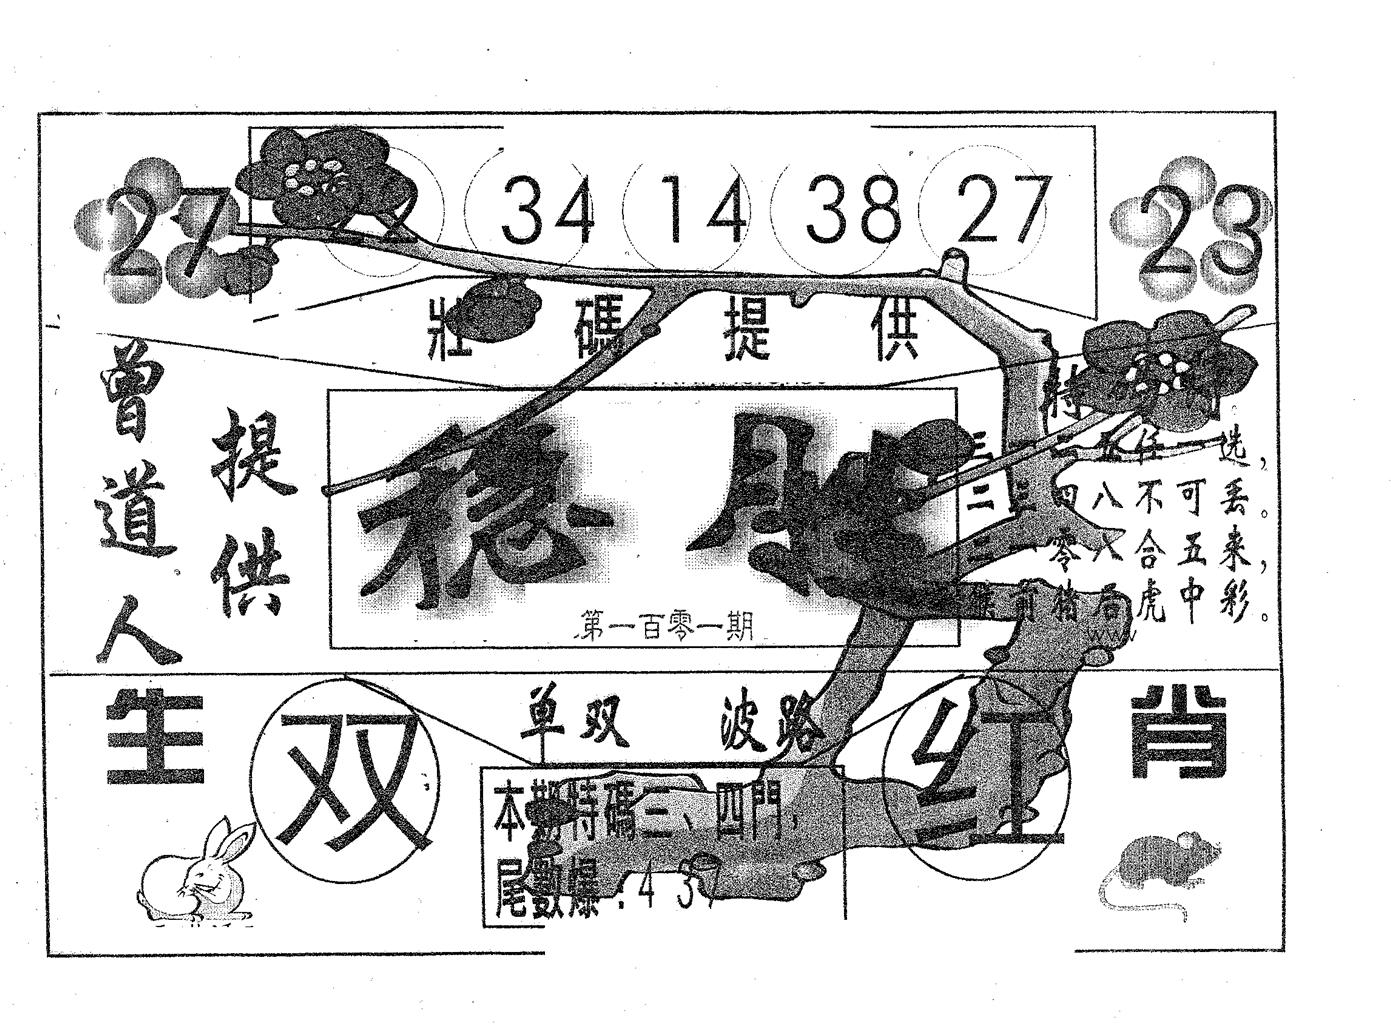 27
34 14 38 27
23
壯碼提供
曾道人
提供
穩勝
第一百零一期
特
任一选，
四八不可丢。
零八合五来，
前猪后虎中彩。
www
生
双
单双 波路
红
肖
本期特碼三、四門，
尾數爆：4 3 7